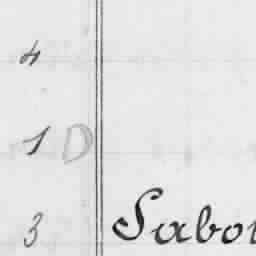 4
1 D
3 Sabo